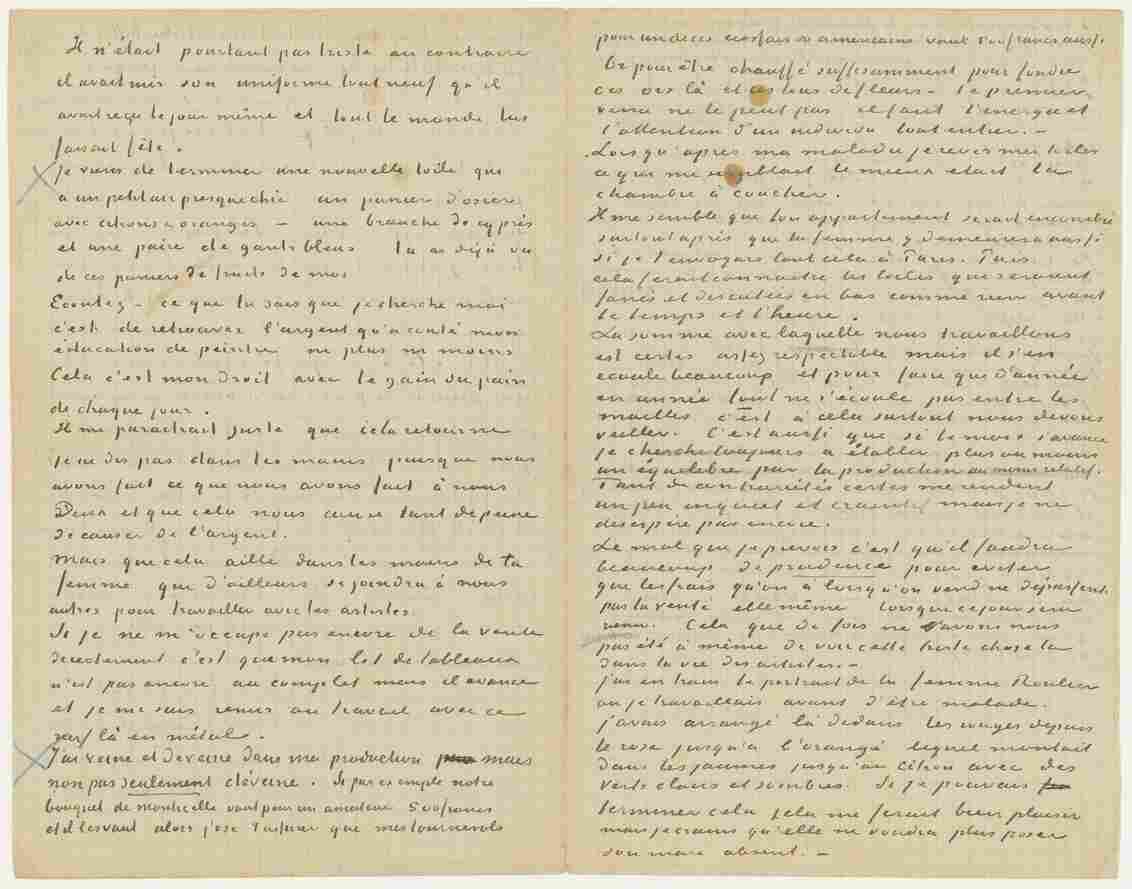 Il n'était pourtant pas triste au contraire
il avait mis son uniforme tout neuf qu'il
avait reçu le jour même et tout le monde lui
faisait fête.
Je viens de terminer une nouvelle toile qui
a un petit air presque chic un panier d'osier
avec citrons & oranges – une branche de cyprès
et une paire de gants bleus tu as déjà vu
de ces paniers de fruits de moi
Ecoutez – ce que tu sais que je cherche moi
c'est de retrouver l'argent qu'a couté mon
éducation de peintre ni plus ni moins
Cela c'est mon droit avec le gain du pain
de chaque jour.
Il me paraitrait juste que cela retourne
je ne dis pas dans tes mains puisque nous
avons fait ce que nous avons fait à nous
Deux et que cela nous cause tant de peine
de causer de l'argent.
mais que cela aille dans les mains de ta
femme qui d'ailleurs se joindra à nous
autres pour travailler avec les artistes.
Si je ne m'occupe pas encore de la vente
directement c'est que mon lot de tableaux
n'est pas encore au complet mais il avance
et je me suis remis au travail avec ce
nerf là en métal.
J'ai veine et déveine dans ma production mais
non pas seulement déveine. Si par exemple notre
bouquet de Monticelli vaut pour un amateur 500 francs
et il les vaut alors j'ose t'assurer que mes tournesols
pour un de ces ecossais ou americains vaut 500 francs aussi.
Or pour être chauffé suffisamment pour fondre
ces ors là et ces tons de fleurs – le premier
venu ne le peut pas il faut l'energie et
l'attention d'un individu tout entier. –
Lorsqu'après ma maladie je revis mes toiles
ce qui me semblait le mieux etait la
chambre à coucher.
Il me semble que ton appartement serait encombré
surtout après que ta femme y demeurera aussi
si je t'envoyais tout cela à Paris. Puis
cela ferait connaitre les toiles qui seraient
fanés et discutées en bas comme rien avant
le temps et l'heure.
La somme avec laquelle nous travaillons
est certes assez respectable mais il s'en
ecoule beaucoup et pour faire que d'année
en année tout ne s'écoule pas entre les
mailles c'est à cela surtout nous devons
veiller. C'est aussi que si le mois s'avance
je cherche toujours à établir plus ou moins
un équilebre par la production au moins relatif.
Tant de contrariétés certes me rendent
un peu inquiet et craintif mais je ne
desespère pas encore.
Le mal que je prevois c'est qu'il faudra
beaucoup de prudence pour eviter
que les frais qu'on a lorsqu'on vend ne dépassent
pas la vente elle même lorsque ce jour sera
venu. Cela que de fois ne l'avons nous
pas été à même de voir cette triste chose la
dans la vie des artistes. –
j'ai en train le portrait de la femme Roulin
ou je travaillais avant d'être malade.
j'avais arrangé là dedans les rouges depuis
le rose jusqu'à l'orangé lequel montait
dans les jaunes jusqu'au citron avec des
verts clairs et sombres. Si je pouvais
terminer cela cela me ferait bien plaisir
mais je crains qu'elle ne voudra plus poser
son mari absent. –